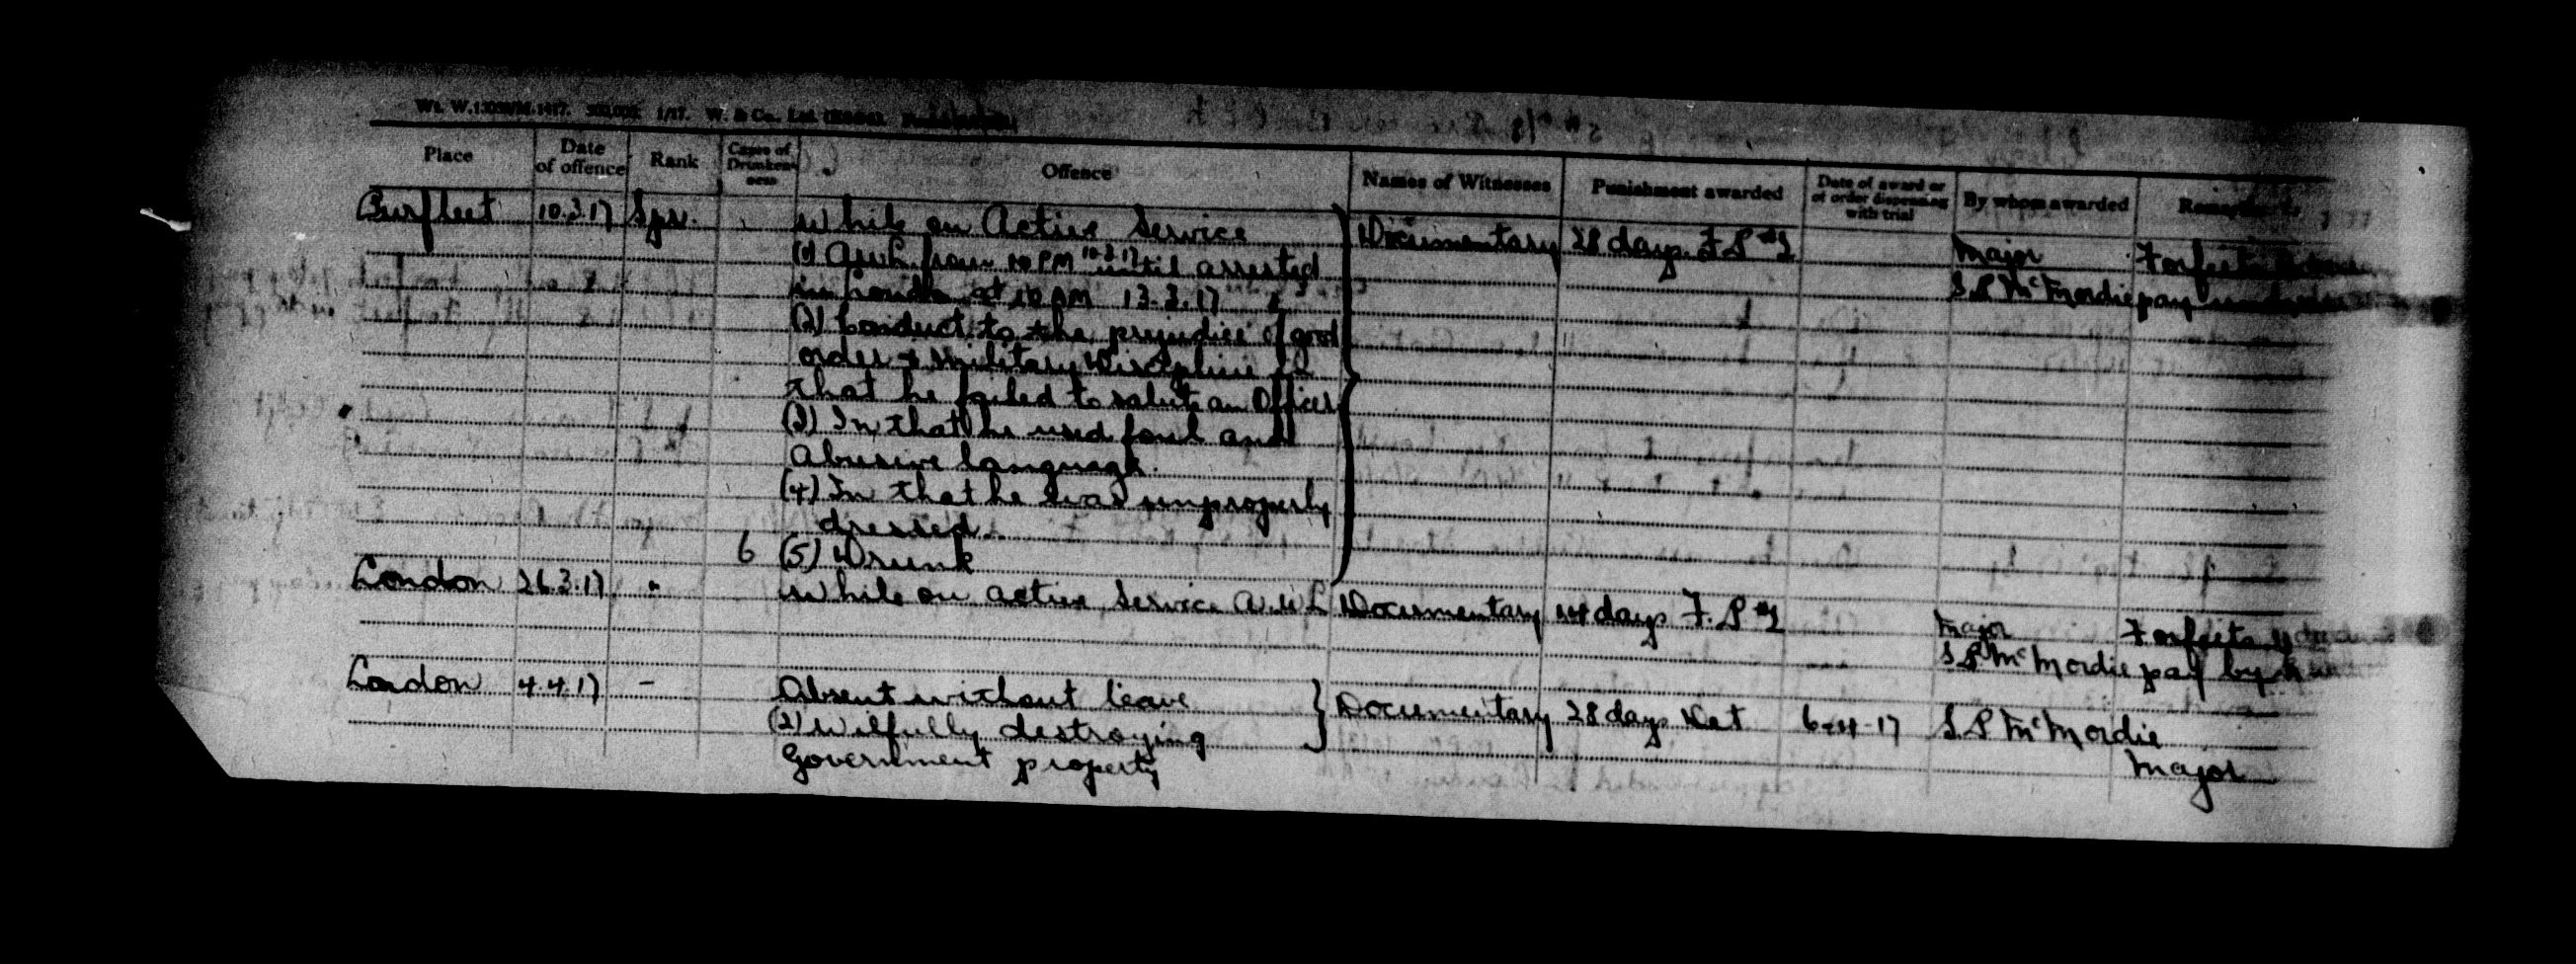 Wt. W. 1/17. W. & Co., Ltd.
Place Date of offence Rank Cases of Drunkenness Offence Names of Witnesses Punishment awarded Date of award or of order dispensing with trial By whom awarded Remarks
Purfleet 10.3.17 Spr. While on Active Service Documentary 28 days F.P #1 Major Forfeits
(1) AWL from 10 PM 10.3.17 until arrested S.P McMordie pay
in London at 10 AM 13.3.17
(2) Conduct to the prejudice of good
order & Military Discipline in
that he failed to salute an Officer
(3) In that he used foul and
Abusive language.
(4) In that he was improperly
dressed.
6 (5) Drunk
London 26.3.17 " While on active Service A.W.L Documentary 14 days F.P #1 Major Forfeits
S.P McMordie pay by
London 4.4.17 - Absent without leave Documentary 28 days Det 6-4-17 S.P McMordie
(2) Wilfully destroying Major
Government property